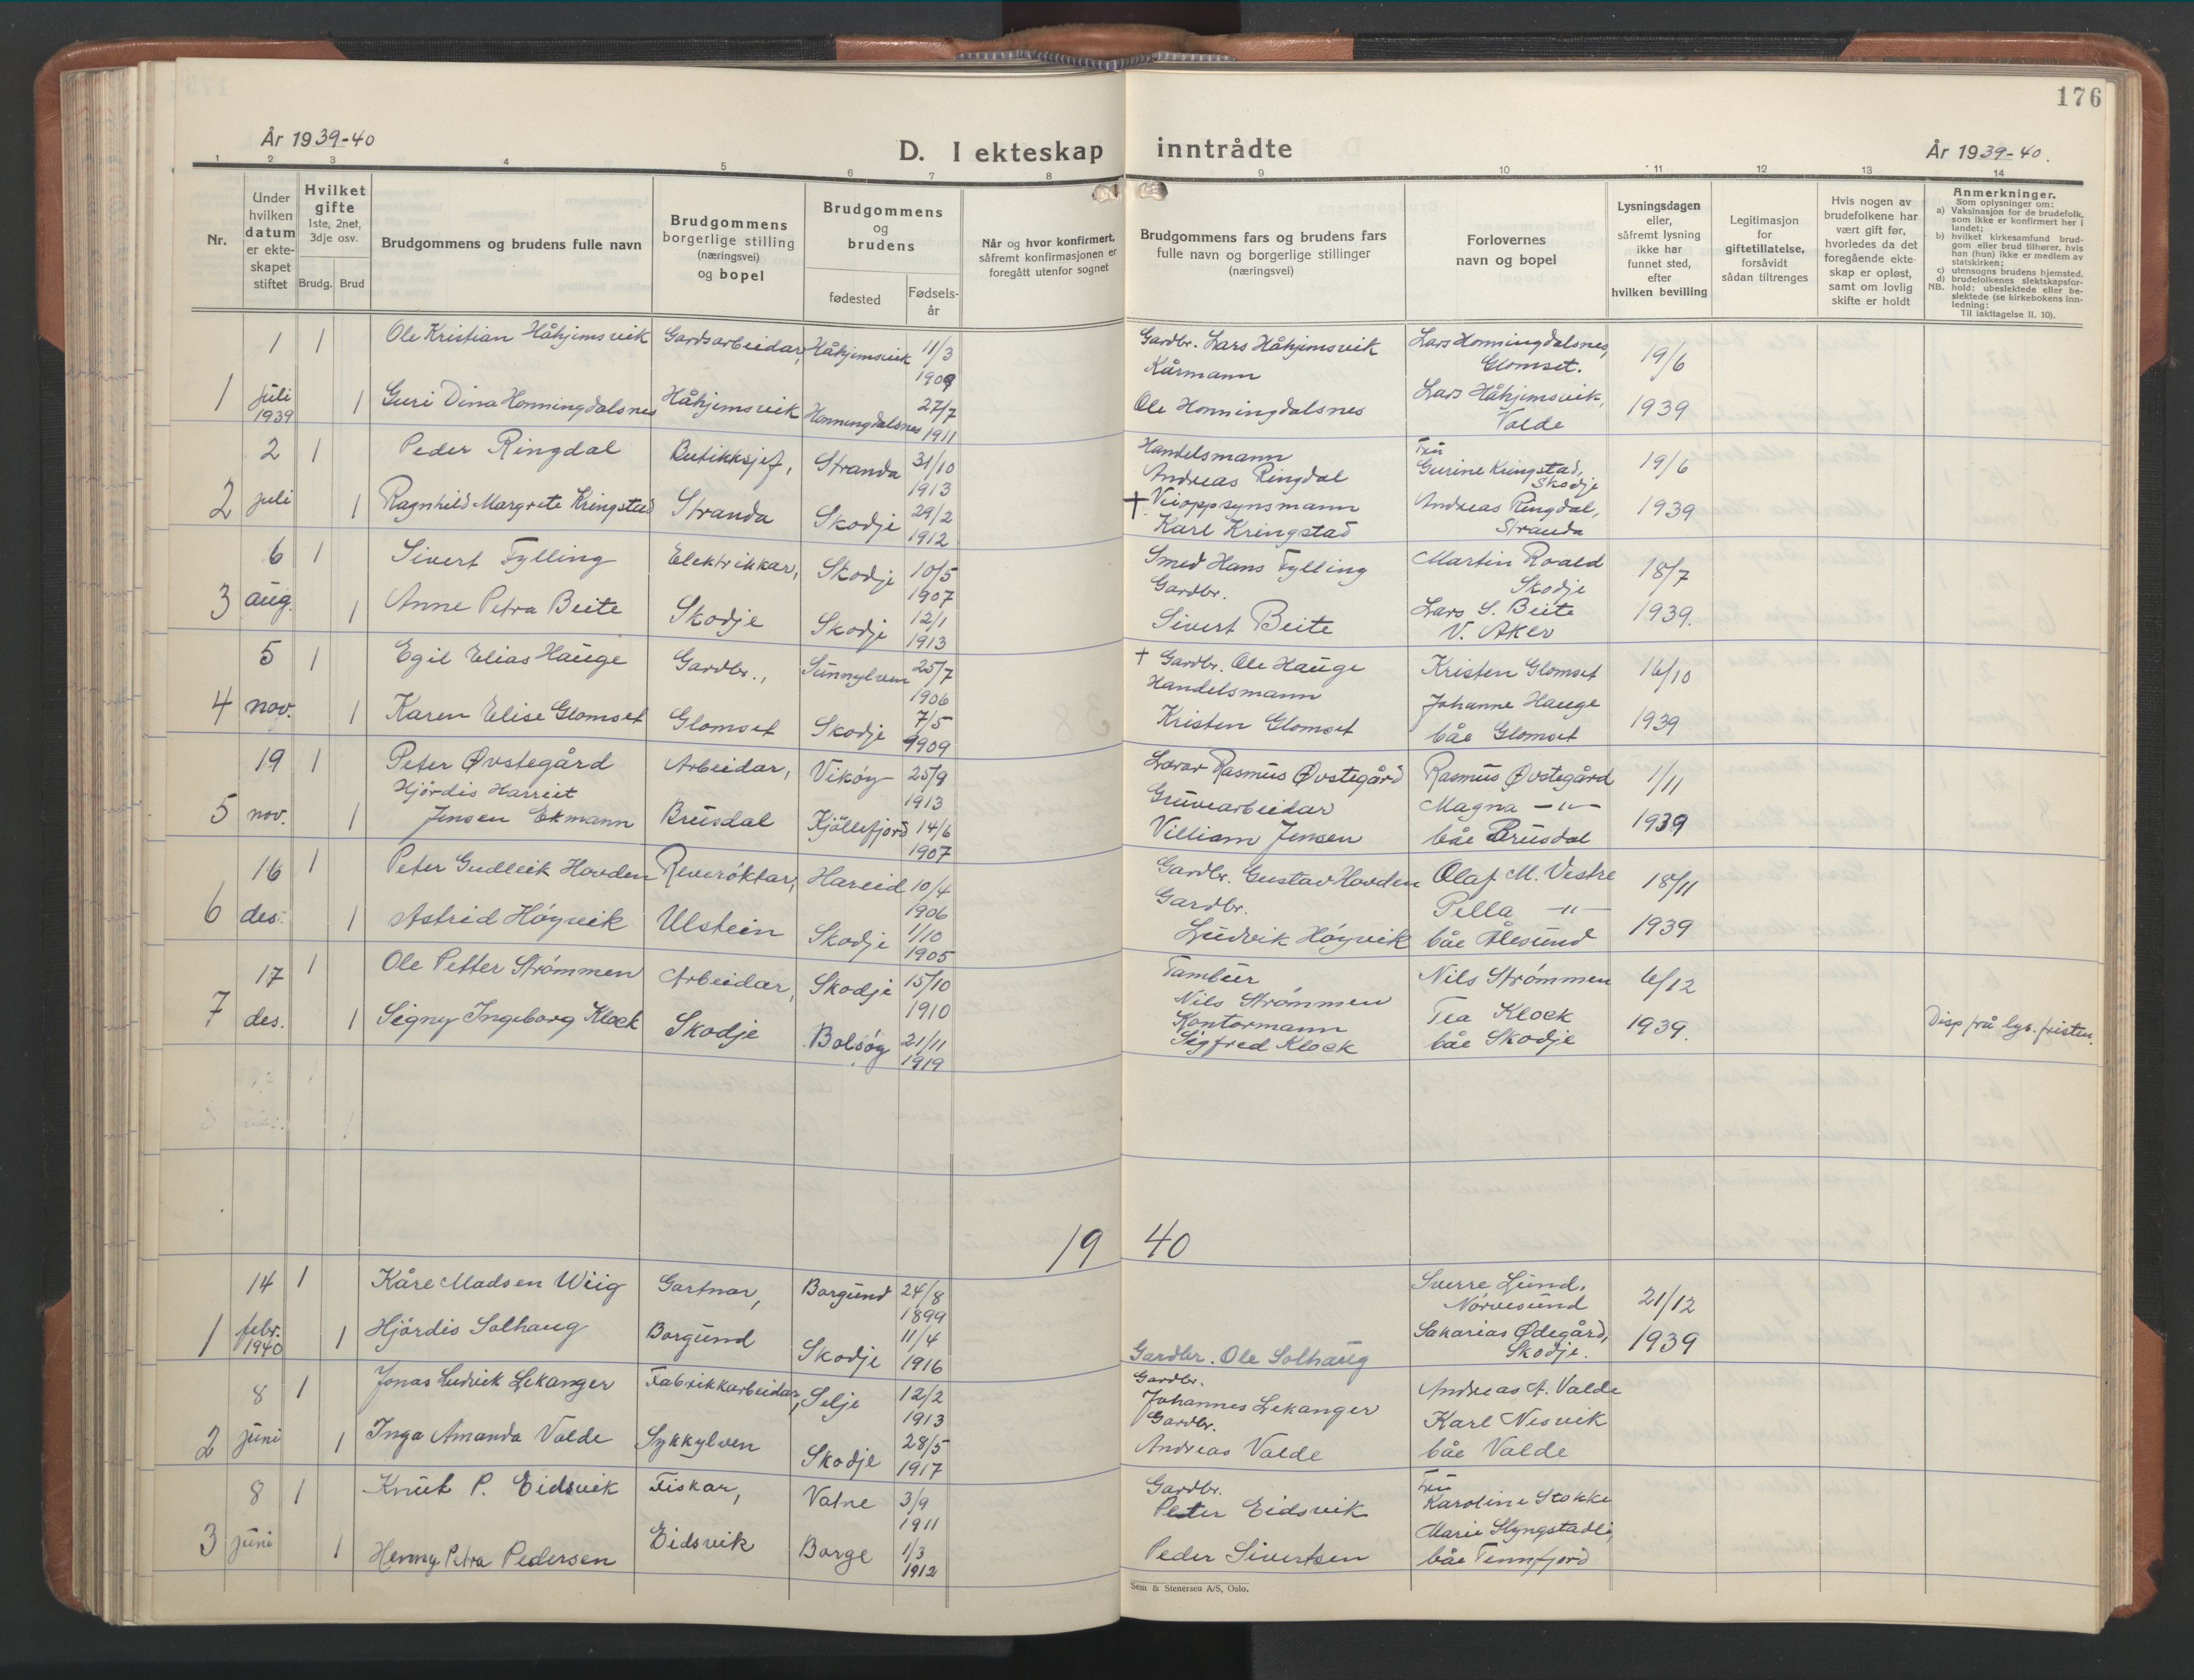 176
År 1939-40
D. I ekteskap inntrådte
År 1939-40.
1 2 3 4 5 6 7 8 9 10 11 12 13 14
Nr.
Under hvilken datum er ekteskapet stiftet
Hvilket gifte
1ste, 2net, 3dje osv.
Brudg. Brud
Brudgommens og brudens fulle navn
Brudgommens borgerlige stilling (næringsvei) og bopel
Brudgommens og brudens
fødested
Fødselsår
Når og hvor konfirmert, såfremt konfirmasjonen er foregått utenfor sognet
Brudgommens fars og brudens fars fulle navn og borgerlige stillinger (næringsvei)
Forlovernes navn og bopel
Lysningsdagen eller, såfremt lysning ikke har funnet sted, efter hvilken bevilling
Legitimasjon for giftetillatelse, forsåvidt sådan tiltrenges
Hvis nogen av brudefolkene har vært gift før, hvorledes da det foregående ekteskap er opløst, samt om lovlig skifte er holdt
Anmerkninger.
Som oplysninger om:
a) Vaksinasjon for de brudefolk, som ikke er konfirmert her i landet;
b) hvilket kirkesamfund brudgom eller brud tilhører, hvis han (hun) ikke er medlem av statskirken;
c) utensogns brudens hjemsted.
d) brudefolkenes slektskapsforhold: ubeslektede eller beslektede (se kirkebokens innledning:
NB. Til iakttagelse II. 10).
1 1 Ole Kristian Håhjemsvik Gardsarbeidar, Håhjemsvik 11/3 1909 Gardbr. Lars Håhjemsvik Lars Honningdalsnes, Glomset. 19/6
1 juli 1939 1 Guri Dina Honningdalsnes Håhjemsvik Honningdalsnes 27/7 1911 Kårmann Ole Honningdalsnes Lars Håhjemsvik, Valde 1939
2 1 Peder Ringdal Butikksjef, Stranda 31/10 1913 Handelsmann Andreas Ringdal Fru Gurine Kringstad, Skodje 19/6
2 juli 1 Ragnhild Margrete Kringstad Stranda Skodje 29/2 1912 † Veioppsynsmann Karl Kringstad Andreas Ringdal, Stranda 1939
6 1 Sivert Fylling Elektrikkar, Skodje 10/5 1907 Smed Hans Fylling Martin Roald Skodje 18/7
3 aug. 1 Anne Petra Beite Skodje Skodje 12/1 1913 Gardbr. Sivert Beite Lars S. Beite V. Aker 1939.
5 1 Egil Elias Hauge Gardbr., Sunnylven 25/7 1906 † Gardbr. Ole Hauge Kristen Glomset 16/10
4 nov. 1 Karen Elise Glomset Glomset Skodje 7/5 1909 Handelsmann Kristen Glomset Johanne Hauge båe Glomset 1939
19 1 Peter Øvstegård Arbeidar, Vikøy 25/9 1913 Lærar Rasmus Øvstegård Rasmus Øvstegård 1/11
5 nov. 1 Hjördis Harriet Jensen Ekmann Brusdal Kjöllefjord 14/6 1907 Gruvearbeidar Villiam Jensen Magna —"— båe Brusdal 1939
16 1 Peter Gudleik Hovden Reverøktar, Hareid 10/4 1906 Gardbr. Gustav Hovden Olaf M. Vestre 18/11
6 des. 1 Astrid Høyvik Ulstein Skodje 1/10 1905 Gardbr. Ludvik Høyvik Pella —"— båe Ålesund 1939
17 1 Ole Petter Strømmen Arbeidar, Skodje 15/10 1910 Tambur Nils Strømmen Nils Strømmen 6/12
7 des. 1 Signy Ingeborg Klock Skodje Bolsøy 21/11 1919 Kontormann Sigfred Klock Tea Klock båe Skodje 1939. Disp frå lys. fristen.
19 40
14 1 Kåre Madsen Wiig Gartnar, Borgund 24/8 1899 Sverre Lund, Nørvesund 21/12
1 febr. 1940 1 Hjördis Solhaug Borgund Skodje 11/4 1916 Gardbr. Ole Solhaug Sakarias Ødegård, Skodje. 1939
8 1 Jonas Ludvik Lekanger Fabrikkarbeidar, Selje 12/2 1913 Gardbr. Johannes Lekanger Andreas A. Valde
2 juni 1 Inga Amanda Valde Sykkylven Skodje 28/5 1917 Gardbr. Andreas Valde Karl Nesvik båe Valde
8 1 Knut P. Eidsvik Fiskar, Vatne 3/9 1911 Gardbr. Peter Eidsvik Fru Karoline Stokke
3 juni 1 Henny Petra Pedersen Eidsvik Borge 1/3 1912 Peder Sivertsen Marie Slyngstadli, båe Tennfjord
Sem & Stenersen A/S, Oslo.